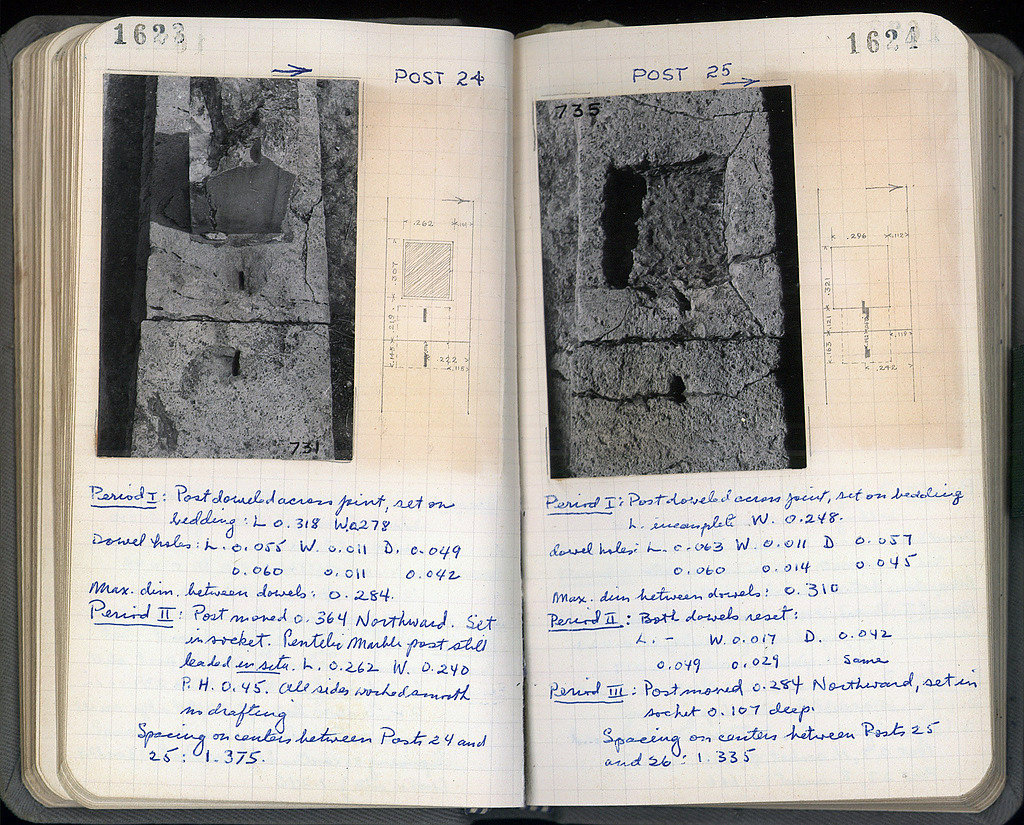 1623
POST 24
731
.262
.307
.219
.222
Period I: Post doweled across joint, set on
bedding: L 0.318 W. 0.278
Dowel holes: L. 0.055 W. 0.011 D. 0.049
0.060 0.011 0.042
Max. dim. between dowels: 0.284.
Period II: Post moved 0.364 Northward. Set
in socket. Pentelic Marble post still
leaded in situ. L. 0.262 W. 0.240
P.H. 0.45. All sides worked smooth
no drafting
Spacing on centers between Posts 24 and
25: 1.375.
1624
POST 25
735
.296
.321
.121
.163
.242
Period I: Post doweled across joint, set on bedding
L. incomplete W. 0.248.
dowel holes: L. 0.063 W. 0.011 D 0.057
0.060 0.014 0.045
Max. dim between dowels: 0.310
Period II: Both dowels reset:
L. - W. 0.017 D. 0.042
0.049 0.029 Same
Period III: Post moved 0.284 Northward, set in
socket 0.107 deep.
Spacing on centers between Posts 25
and 26: 1.335